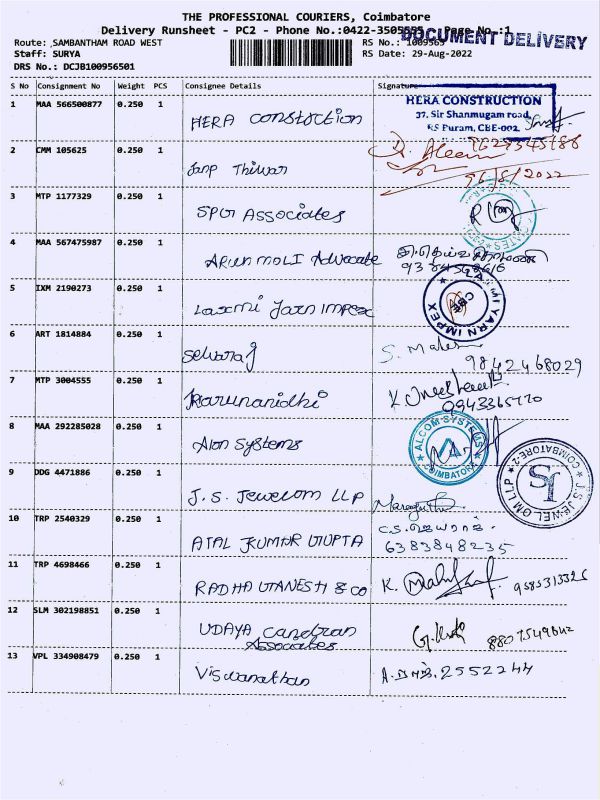 THE PROFESSIONAL COURIERS, Coimbatore
Delivery Runsheet - PC2 - Phone No.:0422-3505555 Page No.:1
DOCUMENT DELIVERY
Route: SAMBANTHAM ROAD WEST RS No.: 1009565
Staff: SURYA RS Date: 29-Aug-2022
DRS No.: DCJB100956501
S No Consignment No Weight PCS Consignee Details Signature
1 MAA 566500877 0.250 1 HERA CONSTUCTION
HERA CONSTRUCTION
37, Sir Shanmugam road,
RS Puram, CBE-002
2 CMM 105625 0.250 1
26/8/2022
3 MTP 1177329 0.250 1 SPG ASSociates
4 MAA 567475987 0.250 1 ARUN MOLI Advocate
5 IXM 2190273 0.250 1 Laxmi Yarn IMPEX
LAXMI YARN IMPEX
CBE
6 ART 1814884 0.250 1 Selvaraj
9842468029
7 MTP 3004555 0.250 1 Karunanidhi
8 MAA 292285028 0.250 1 Alon Systems
ALCOM SYSTEMS
COIMBATORE
9 DDG 4471886 0.250 1 J.S. Jewelom LLP
J.S. JEWELOM LLP
COIMBATORE-2
JS
10 TRP 2540329 0.250 1 ATAL KUMAR GUPTA
6383848235
11 TRP 4698466 0.250 1 RADHA GANESH & co K.
12 SLM 302198851 0.250 1 UDAYA Candran
Associates
8807549642
13 VPL 334908479 0.250 1 Viswanathan 2552244